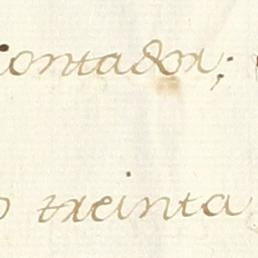 contador;
o treinta